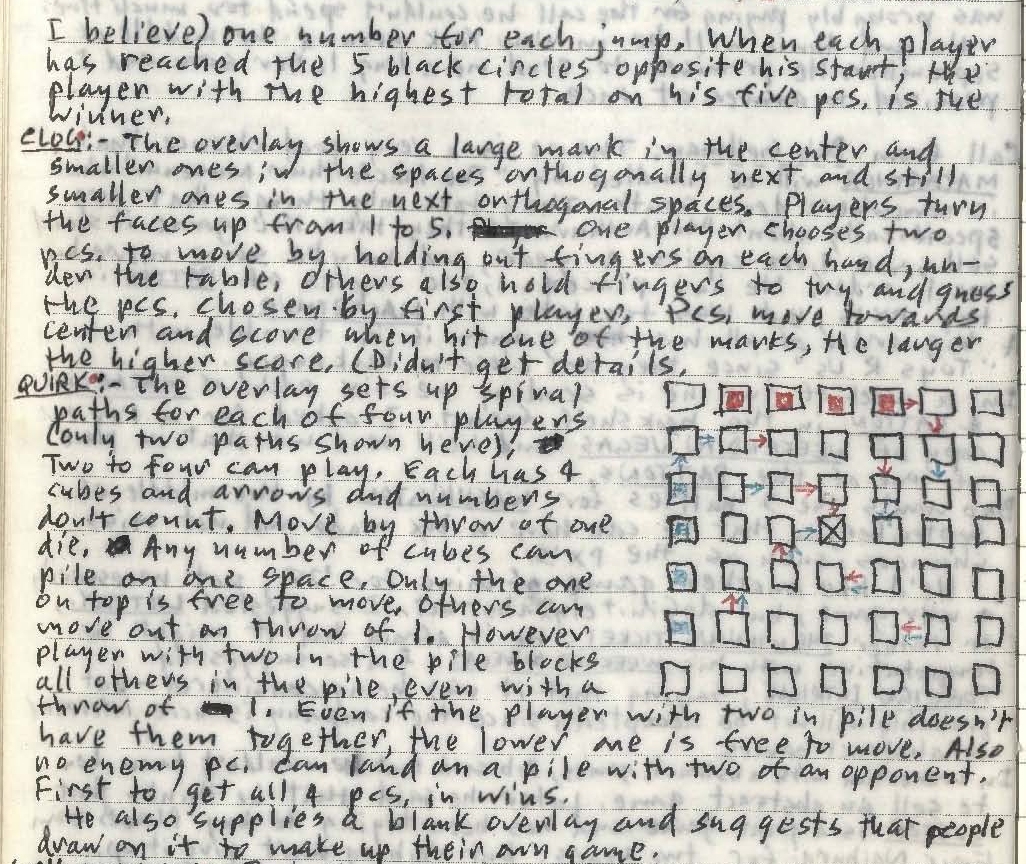 I believe) one number for each jump. When each player
has reached the 5 black circles opposite his start, the
player with the highest total on his five pcs. is the
winner.
CLOG:- The overlay shows a large mark in the center and
smaller ones in the spaces orthogonally next and still
smaller ones in the next orthogonal spaces. Players turn
the faces up from 1 to 5. One player chooses two
pcs. to move by holding out fingers on each hand, un-
der the table. Others also hold fingers to try and guess
the pcs. chosen by first player. Pcs. move towards
center and score when hit one of the marks, the larger
the higher score. (Didn't get details.
QUIRK:- The overlay sets up spiral
paths for each of four players
(only two paths shown here).
Two to four can play. Each has 4
cubes and arrows and numbers
don't count. Move by throw of one
die. Any number of cubes can
pile on one space. Only the one
on top is free to move. Others can
move out on throw of 1. However
player with two in the pile blocks
all others in the pile even with a
throw of 1. Even if the player with two in pile doesn't
have them together, the lower one is free to move. Also
no enemy pc. can land on a pile with two of an opponent.
First to get all 4 pcs. in wins.
He also supplies a blank overlay and suggests that people
draw on it to make up their own game.